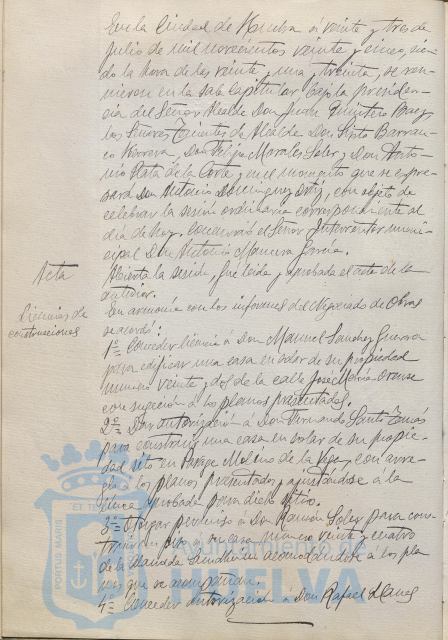 En la Ciudad de Huelva á veinte y tres de
Julio de mil novecientos veinte y cinco, sien-
do la hora de las veinte y una y treinta, se reu-
nieron en la sala Capitular bajo la presiden-
cia del Señor Alcalde Don Juan Quintero Baez
los Señores Tenientes de Alcalde Don Sixto Barran-
co Herrera, Don Felipe Morales Soler y Don Anto-
nio Mata de la Corte y en el momento que se expre-
sará Don Antonio Dominguez Ortiz, con objeto de
celebrar la sesión ordinaria correspondiente al
día de hoy. Concurrió el Señor Interventor muni-
cipal Don Antonio Garcia.
Acta
Abierta la sesión, fué leida y aprobada el acta de la
anterior.
Licencias de
construcciones
En armonía con los informes del Negociado de Obras
se acordó:
1º= Conceder licencia á Don Manuel Sanchez Guerra
para edificar una casa en solar de su propiedad
numero veinte y dos de la calle José Maria Orense
con sujeción á los planos presentados.
2º= Dar autorización á Don Fernando Santo Tomás
para construir una casa en solar de su propie-
dad sito en Paraje Molino de la Vega, con arre-
glo á los planos presentados y ajustándose á la
linea aprobada para dicho sitio.
3º= Otorgar permiso á Don Ramón Soler para cons-
truir un piso á su casa numero veinte y cuatro
de la Alameda Sundheim acomodandose á los pla-
nos que se acompañan.
4º= Conceder autorización á Don Rafael
PORTUS MARIS ET TE
Ayuntamiento de
HUELVA